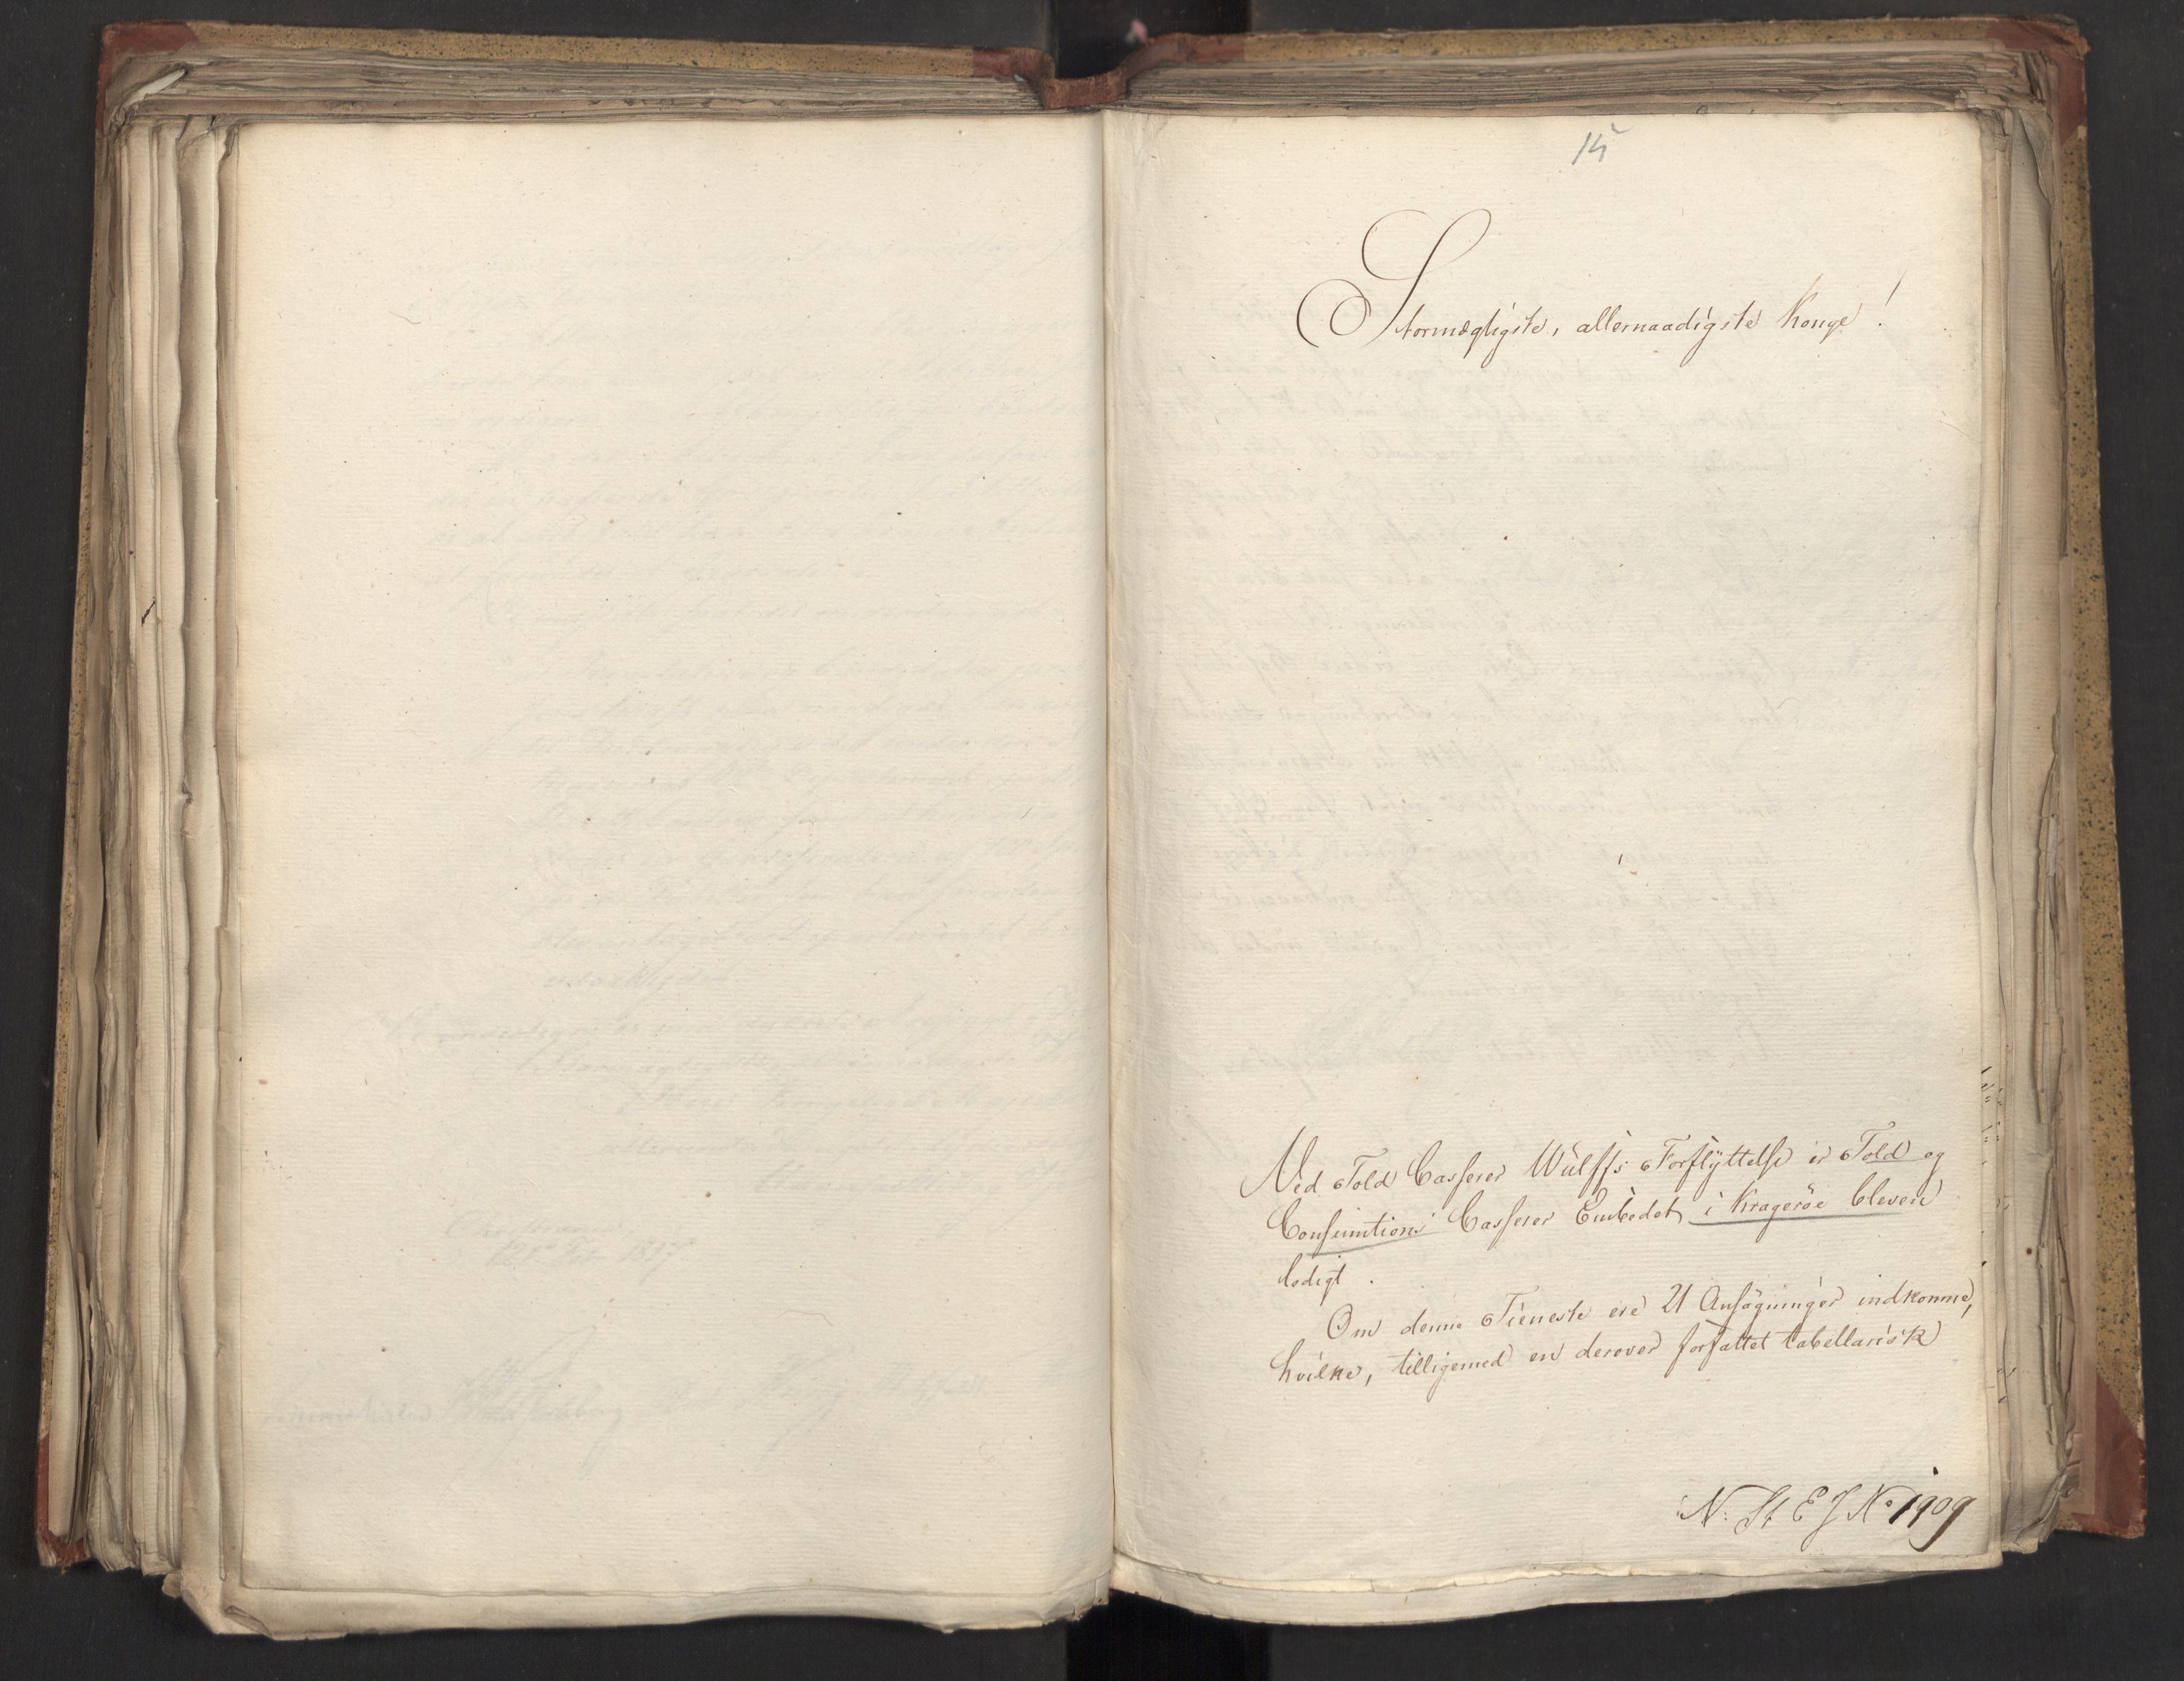 15
Stormægtigste, allernaadigste Konge!
Ved Told Casserer Wulffs Forflyttelse er Told og
Consumtions Casserer Embedet i Kragerøe bleven
ledigt.
Om denne Tieneste ere 21 Ansøgninger indkomne,
hvilke, tilligemed en derover forfattet tabellarisk
N: St E J No 1909